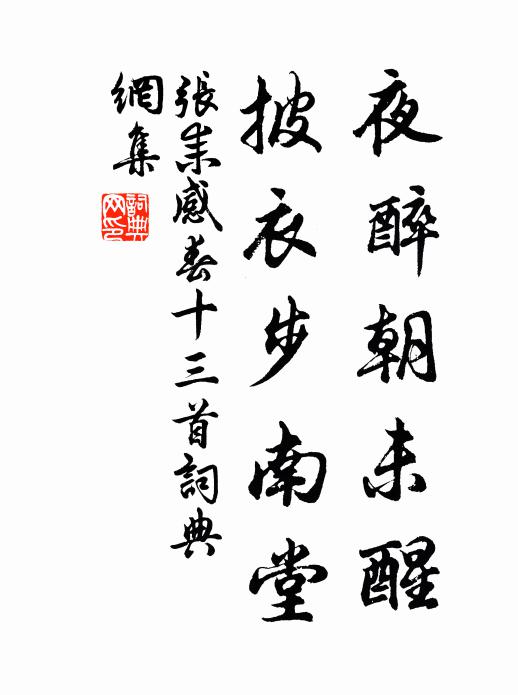 夜醉朝未醒
披衣步南堂
張耒感春十三首詞典
網集
詞典
网印